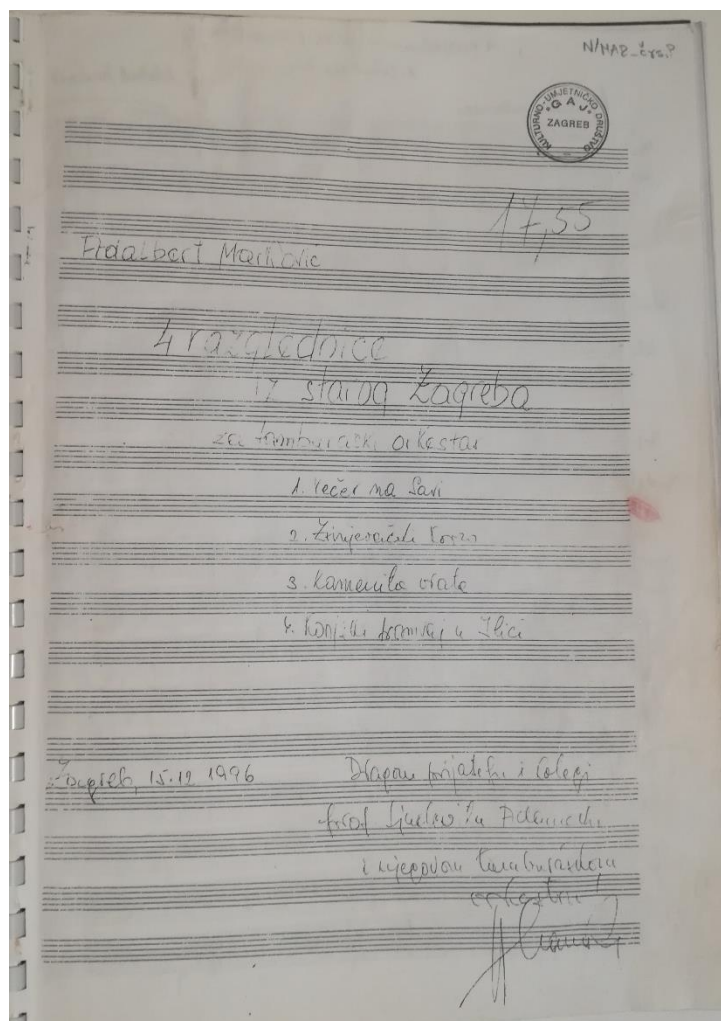 N/MAR_čzs.?
KULTURNO-UMJETNIČKO DRUŠTVO
"GAJ"
ZAGREB
17,55
Adalbert Marković
4 razglednice
iz starog Zagreba
za tamburaški orkestar
1. Večer na Savi
2. Zrinjevački korzo
3. Kamenita vrata
4. Konjski tramvaj u Ilici
Zagreb, 15.12 1996
Dragom prijatelju i kolegi
prof
i njegovom tamburaškom
orkestru